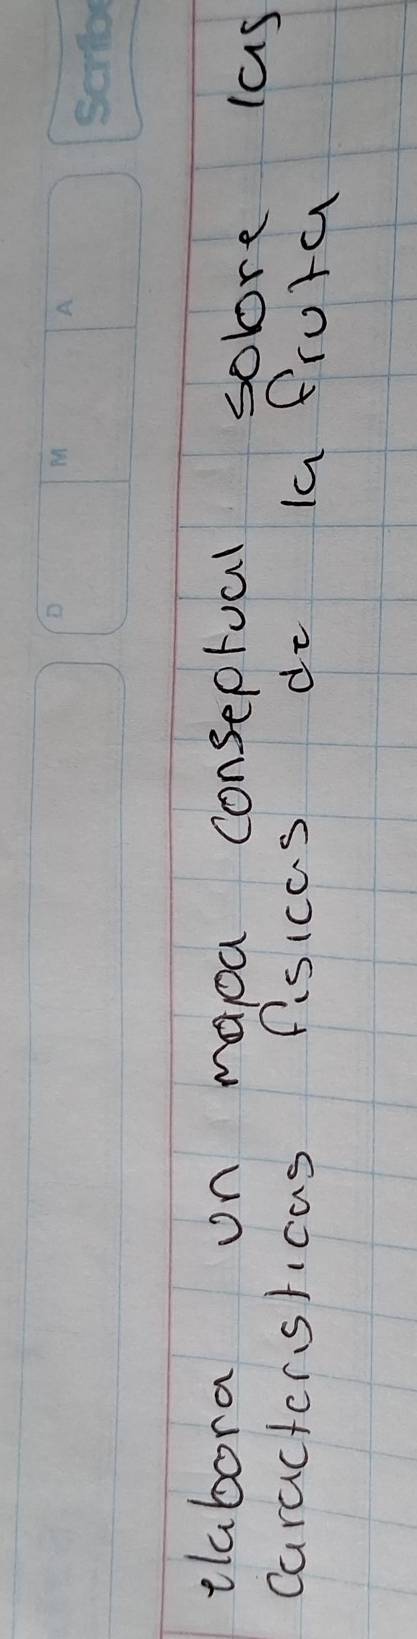 Scribe
D M A
elabora un mapa conseptual sobre las
caracteristicas fisicas de la fruta